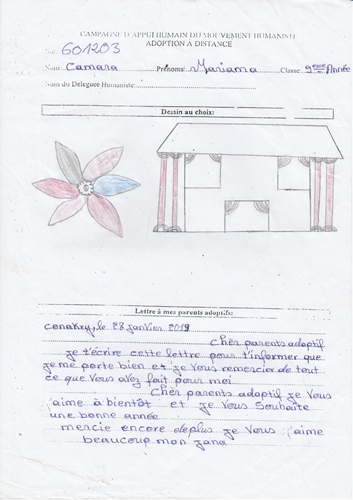 CAMPAGNE D'APPUI HUMAIN DU MOUVEMENT HUMANISTE
ADOPTION A DISTANCE
No: 601203
Nom: Camara Prénoms: Mariama Classe: 9ème Année
Nom du Délégué Humaniste:
Dessin au choix:
Lettre à mes parents adoptifs:
Conakry, le 28 janvier 2019
Cher parents adoptif
je t'écrire cette lettre pour t'informer que
je me porte bien et je vous remercier de tout
ce que vous avez fait pour moi
Cher parents adoptif je vous
aime à bientôt et je vous souhaite
une bonne année
mercie encore de plus je vous aime
beaucoup mon